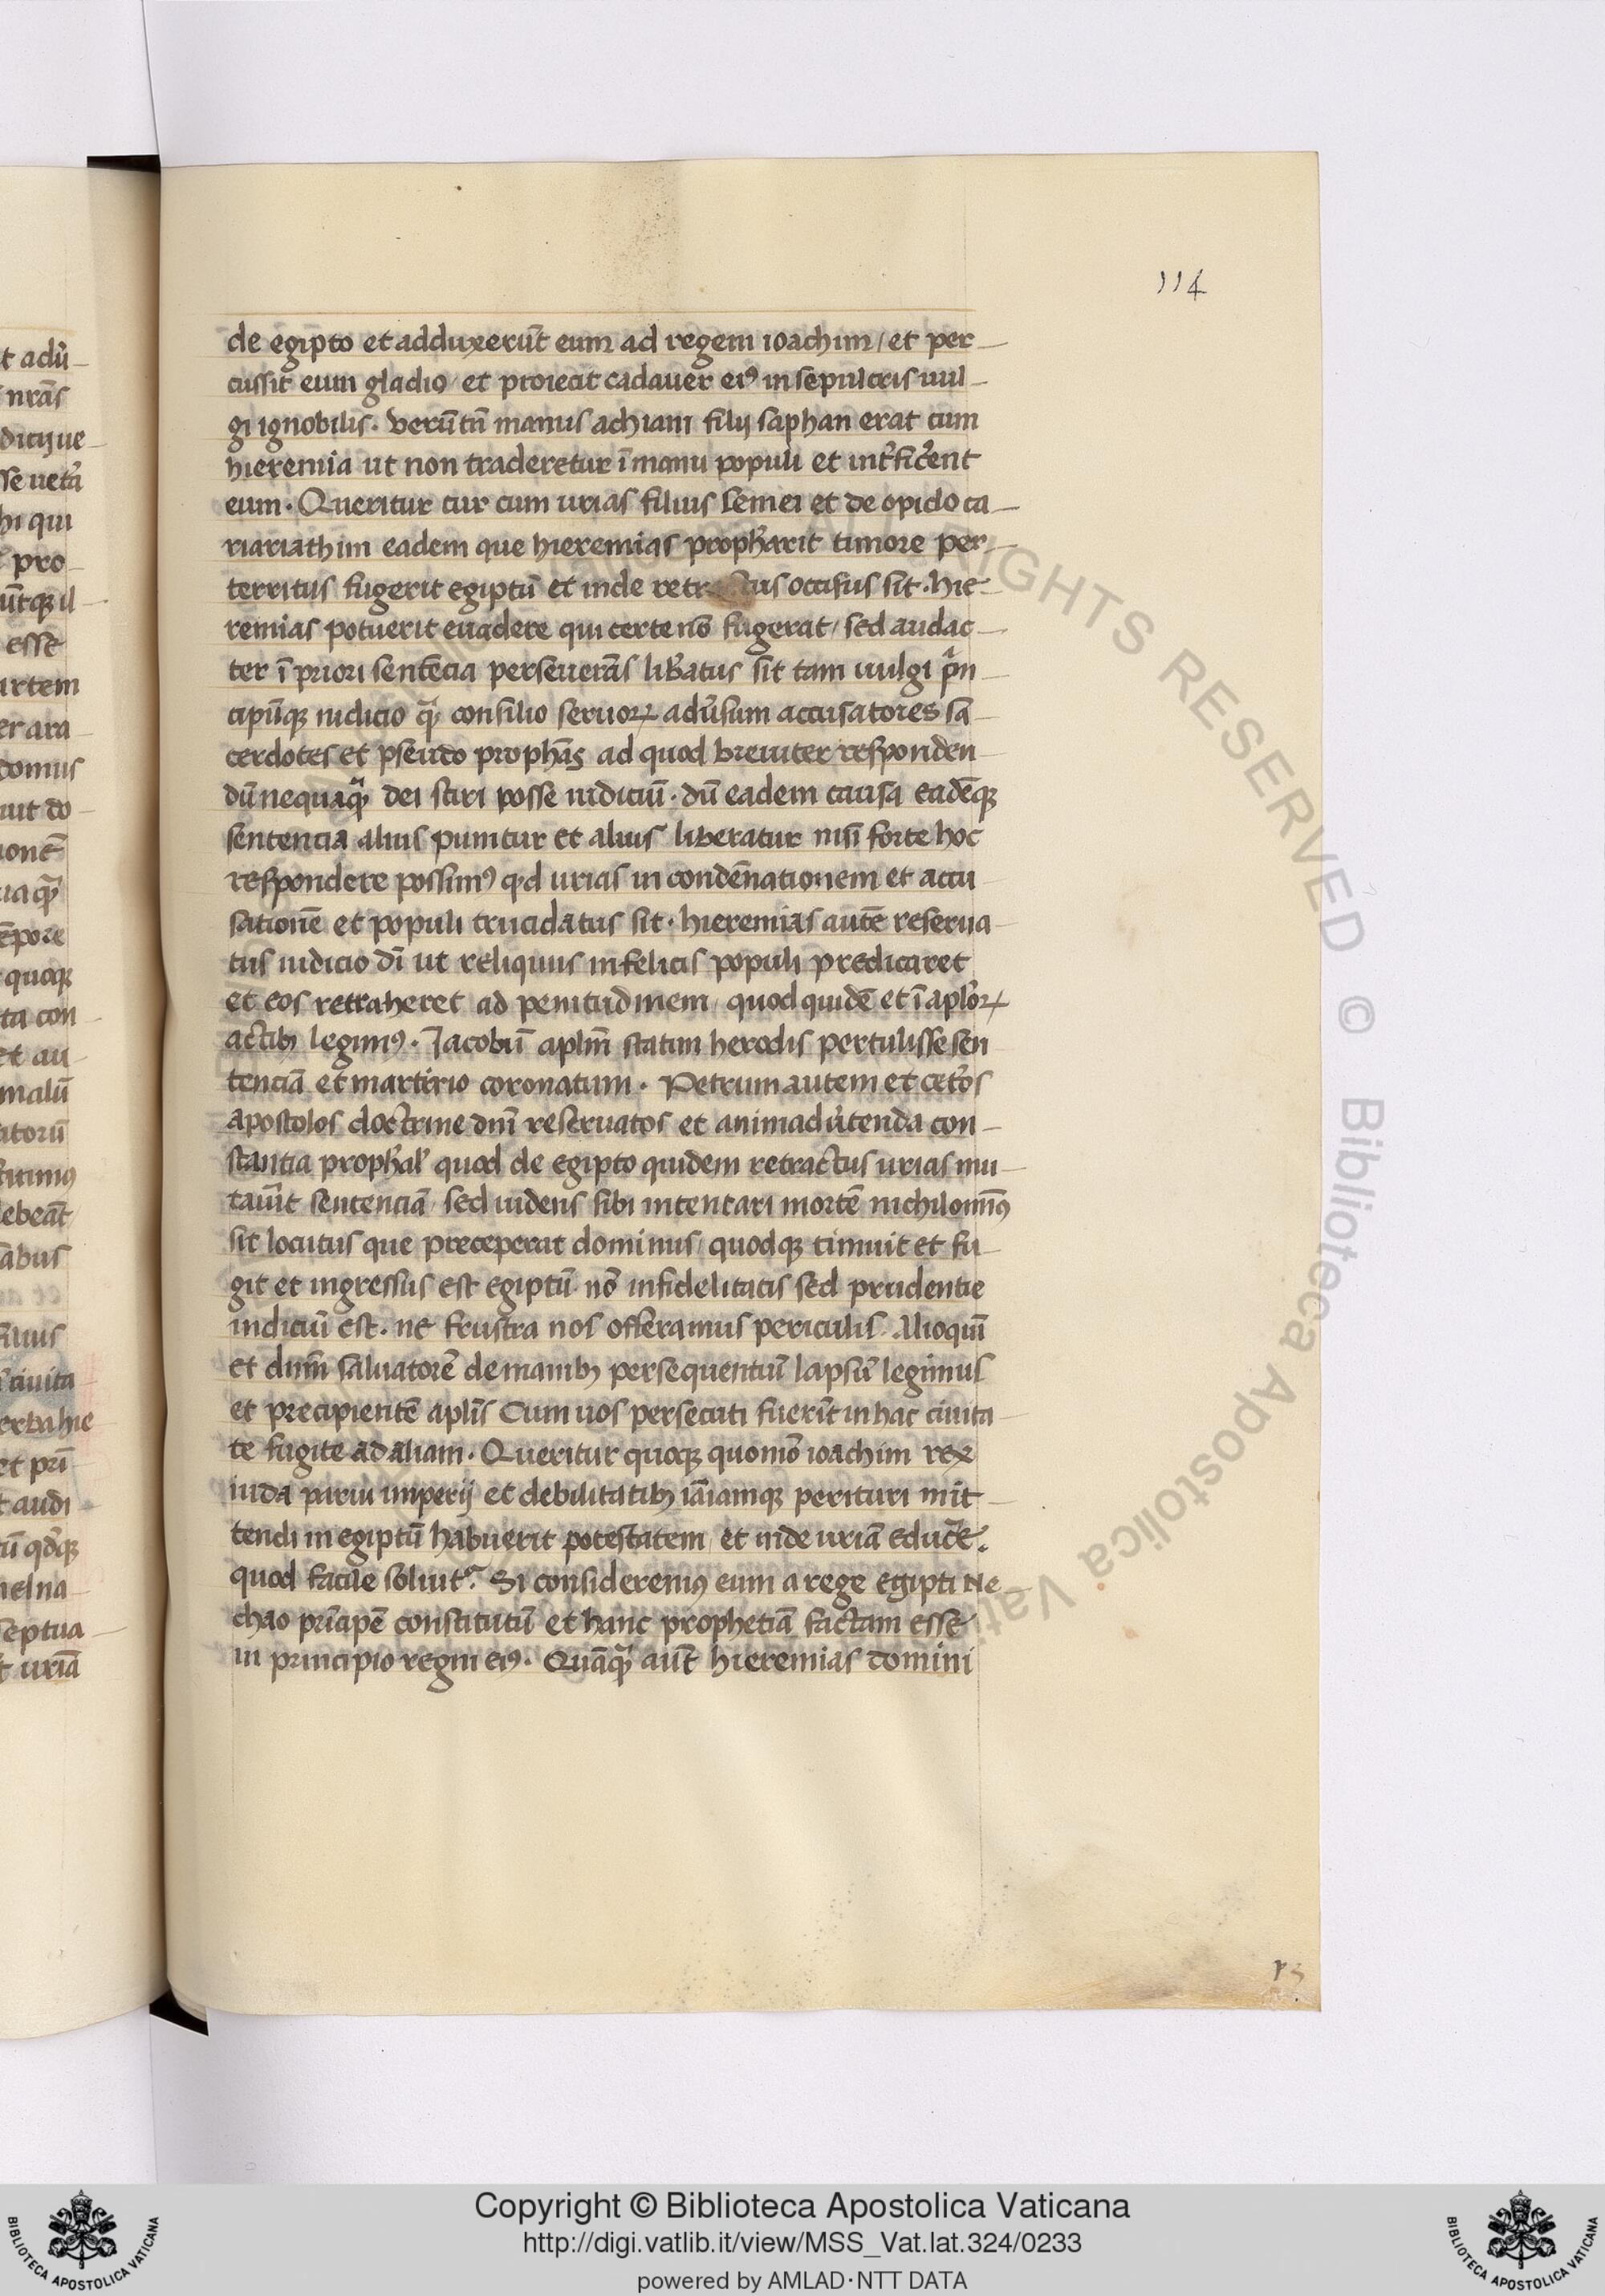 114
de egipto et adduxerūt eum ad regem ioachim / et per
cussit eum gladio / et proiecit cadauer eiꝰ in sepulcris uul
gi ignobilis. Verūtn̄ manus achiam filij saphan erat cum
hieremia ut non traderetur ī manu populi et int̓fic̓ent
eum. Queritur cur cum urias filius semei et de opido ca
riariathim eadem que hieremias prophetarit timore per
territus fugerit egiptū et inde retractus occisus sit. hie
remias potuerit euadere qui certe nō fugerat / sed audac
ter ī priori sentēcia perseuerās lib̓atus sit tam uulgi p̓n
cipūqꝫ iudicio qꝫ̃ consilio seruoꝝ adu̓sum accusatores sa
cerdotes et pseudo prophas̄ ad quod breuiter responden
dū nequaqꝫ̃ dei sciri posse iudiciū. dū eadem causa eadēqꝫ
sentencia alius punitur et alius liberatur nisi forte hoc
respondere possimꝰ qd urias in condēnationem et accu
sationē et populi trucidatus sit. hieremias autē reserua
tus iudicio dī ut reliquus infelicis populi predicaret
et eos retraheret ad penitudinem / quod quidē et ī apl̓oꝝ
actibꝫ legimꝰ. Jacobū aplm̄ statim herodis pertulisse sen
tenciā et martirio coronatum. Petrum autem et cet̓os
apostolos doctrine dnī reseruatos et animadu̓tenda con
stantia prophaľ quod de egipto quidem retractus urias mu
tau̓it sentenciā / sed uidens sibi intentari mortē nichilominꝰ
sit locutus que preceperat dominus / quodqꝫ timuit et fu
git et ingressus est egiptū nō infidelitatis sed prudentie
indiciū est. ne frustra nos offeramus periculis. Alioquī
et dnm̄ saluatorē de manibꝫ persequentiū lapsū legimus
et precipientē aplīs Cum uos persecuti fuerīt in hac ciuita
te fugite ad aliam. Queritur quoqꝫ quomō ioachim rex
iuda parui imperij et debilitatibꝫ iāiamqꝫ perituri mit
tendi in egiptū habuerit potestatem / et inde uriā educ̓e.
quod facile soluit̓. Si consideremꝰ eum a rege egipti Ne
chao prīcipē constitutū et hanc prophetiā factam esse
in principio regni eiꝰ. Quāqꝫ̃ aut̄ hieremias domini
ALL RIGHTS RESERVED © Biblioteca Apostolica Vaticana
Copyright © Biblioteca Apostolica Vaticana
http://digi.vatlib.it/view/MSS_Vat.lat.324/0233
powered by AMLAD·NTT DATA
BIBLIOTECA APOSTOLICA VATICANA
BIBLIOTECA APOSTOLICA VATICANA